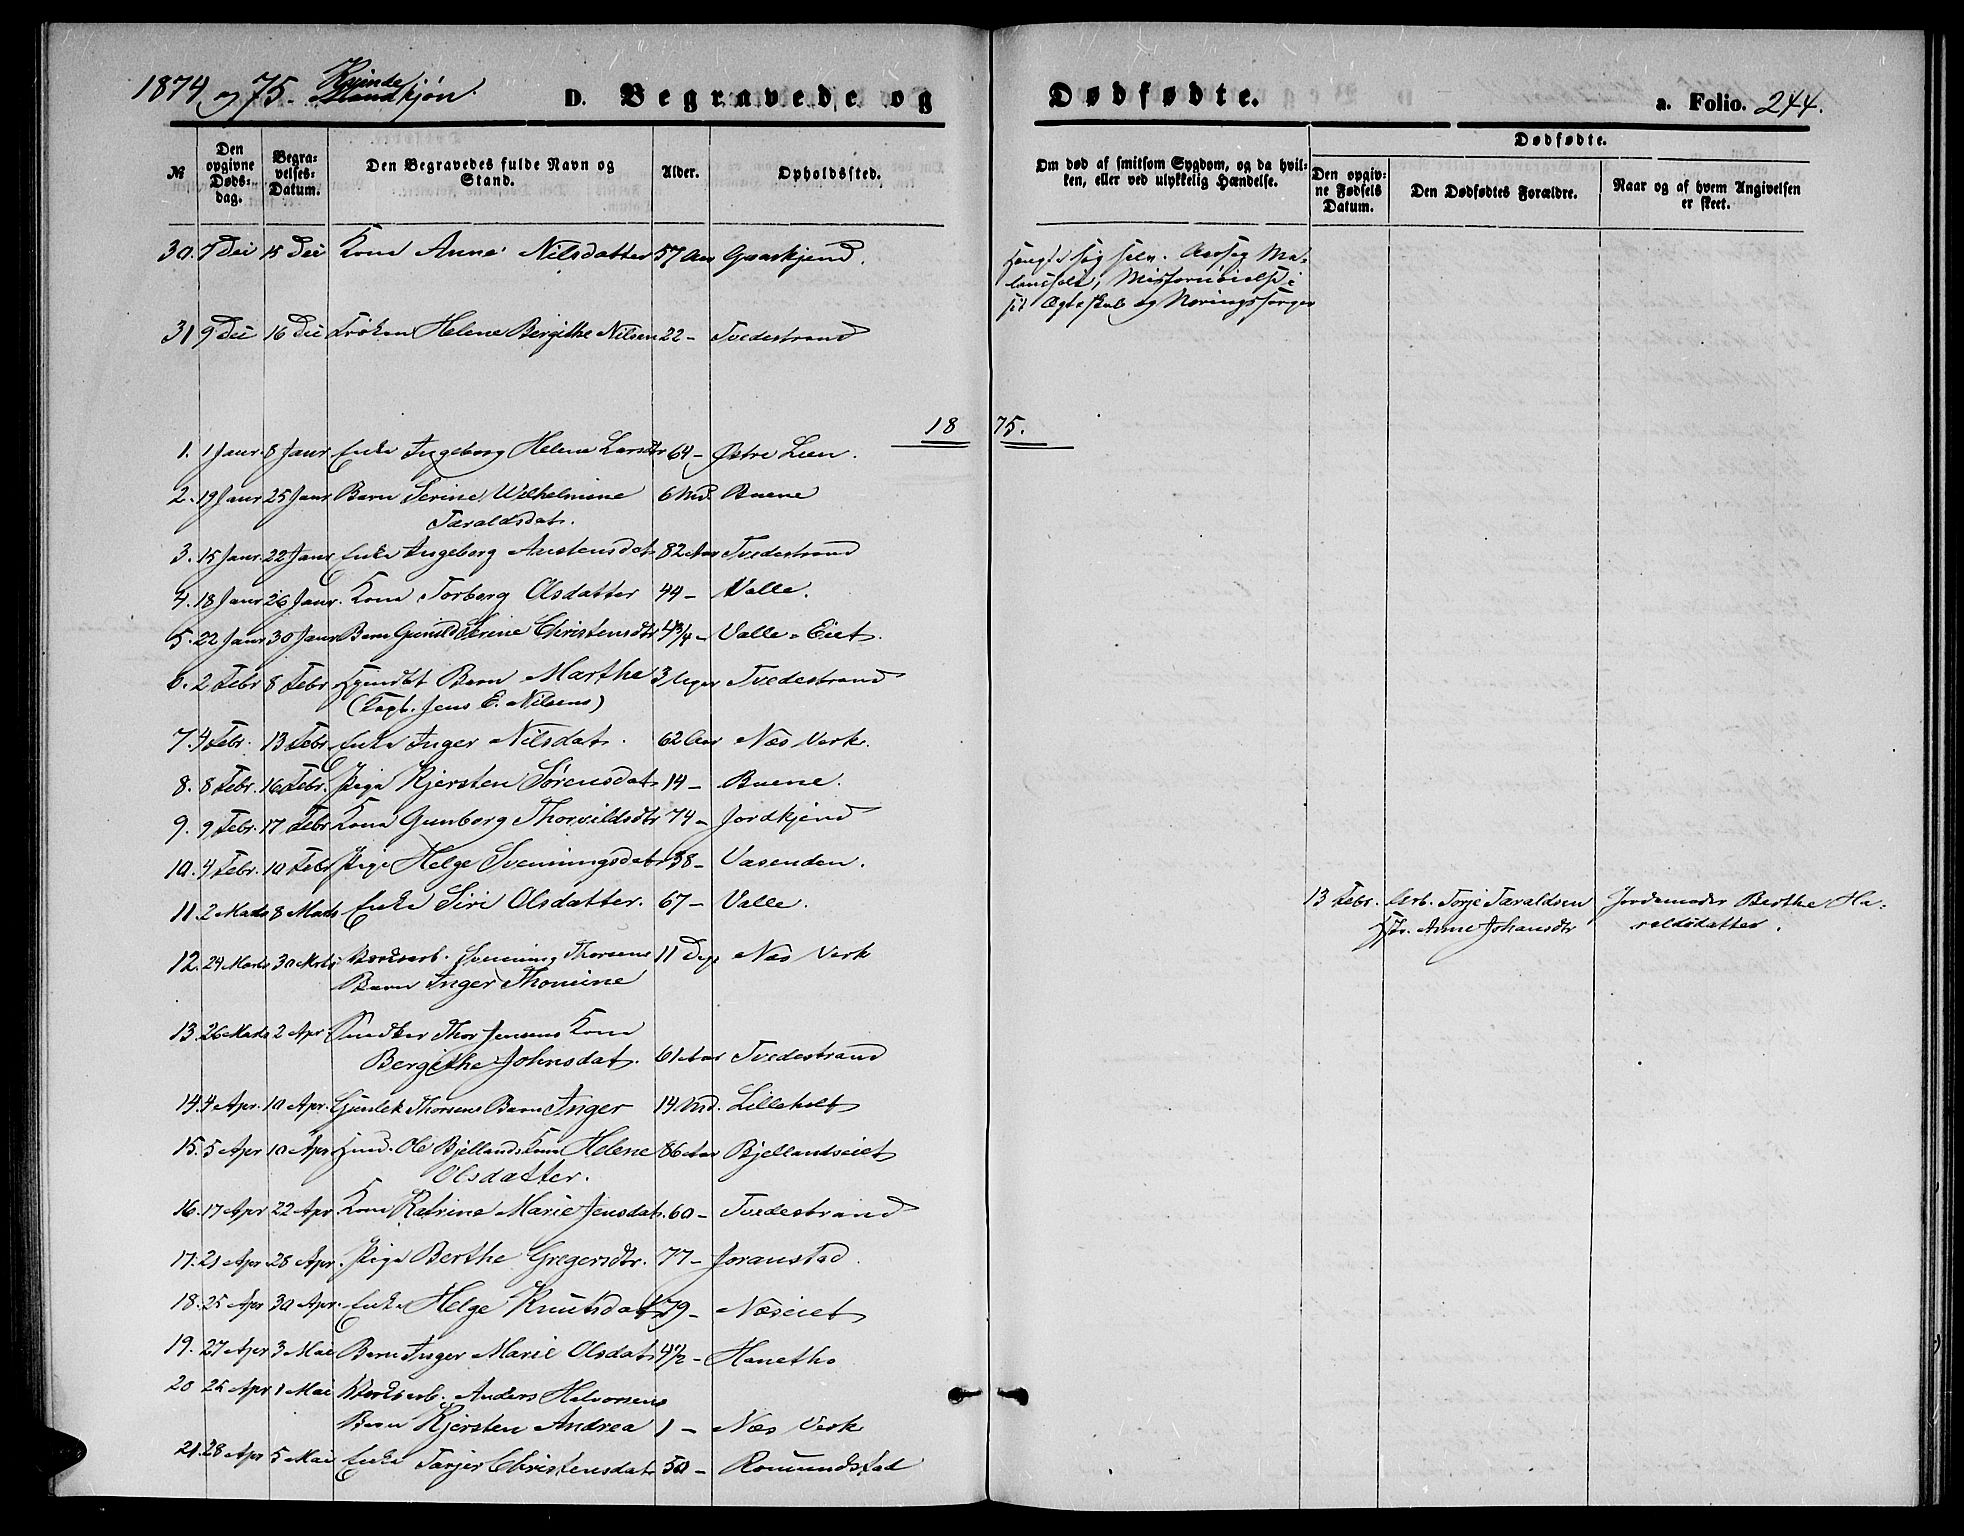 1874 og 75. Kvindekjøn.
D. Begravede og Dødfødte.
a. Folio. 244.
№ | Den opgivne Dødsdag. | Begravelses-Datum. | Den Begravedes fulde Navn og Stand. | Alder. | Opholdssted. | Om død af smitsom Sygdom, og da hvilken, eller ved ulykkelig Hændelse. | Dødfødte. Den opgivne Fødsels Datum. | Den Dødfødtes Forældre. | Naar og af hvem Angivelsen er skeet.
30. 7 Dec 15 Dec Kone Anne Nilsdatter 57 Aar Gaaskjend. Hengte sig selv. Aarsag Me-
lancholi, Misfornøielse i
sit Ægteskab og Næringssorger
31 9 Dec 16 Dec Frøken Helene Bergithe Nilsen 22 - Tvedestrand
18 75.
1. 1 Janr. 8 Janr Enke Ingeborg Helene Larsdtr 64 - Østre Lien.
2. 19 Janr 25 Janr Barn Serine Wilhelmine 6 Md. Buene
Taraldsdat.
3. 15 Janr. 22 Janr Enke Ingeborg Austensdat 82 Aar Tvedestrand
4. 18 Janr 26 Janr. Kone Torborg Olsdatter 44 - Valle.
5. 22 Janr 30 Janr Barn Gunild Serine Christensdtr 4 3/4 - Valle-Eiet.
6. 2 Febr 8 Febr Barn Marthe 3 Uger Tvedestrand
(Jens E. Nilsens)
7. 4 Febr. 13 Febr. Enke Inger Nilsdat. 62 Aar Næs Verk.
8. 8 Febr. 16 Febr. Pige Kjersten Sørensdat 14 - Buene.
9. 9 Febr. 17 Febr Kone Gunborg Thorvildsdtr 74 - Jordkjend
10. 4 Febr. 10 Febr Pige Helge Svenningsdat 38 - Vasenden.
11. 2 Marts 8 Marts Enke Siri Olsdatter. 67 - Valle. 13 Febr. Arb. Torje Taraldsen Jordemoder Berthe Ha-
Hstr. Anne Johansdtr raldsdatter.
12. 24 Marts 30 Marts Værksarb. Svenning Thorsens 11 Dge Næs Verk
Barn Inger Thomine
13. 26 Marts 2 Apr. Snedker Thor Jensens Kone
Bergithe Johnsdat. 61 Aar Tvedestrand
14. 4 Apr. 10 Apr. Gunlek Thorsens Barn Inger 14 Md. Lilleholt
15. 5 Apr 10 Apr Husmd. Ole Bjellands Kone Helene 86 Aar Bjellandseiet
Olsdatter.
16. 17 Apr 22 Apr Kone Katrine Marie Jensdat. 60 - Tvedestrand
17. 21 Apr 28 Apr. Pige Berthe Gregersdtr. 77 - Joranstad.
18. 25 Apr 30 Apr. Enke Helge Knutsdat 79 - Næseiet
19. 27 Apr 3 Mai Barn Inger Marie Olsdat 4 1/2 - Hanetho
20 25 Apr 1 Mai Værksarb. Anders Halvorsens
Barn Kjersten Andrea 1 - Næs Verk
21. 28 Apr 5 Mai Enke Tarjer Christensdat 50 - Romundstad